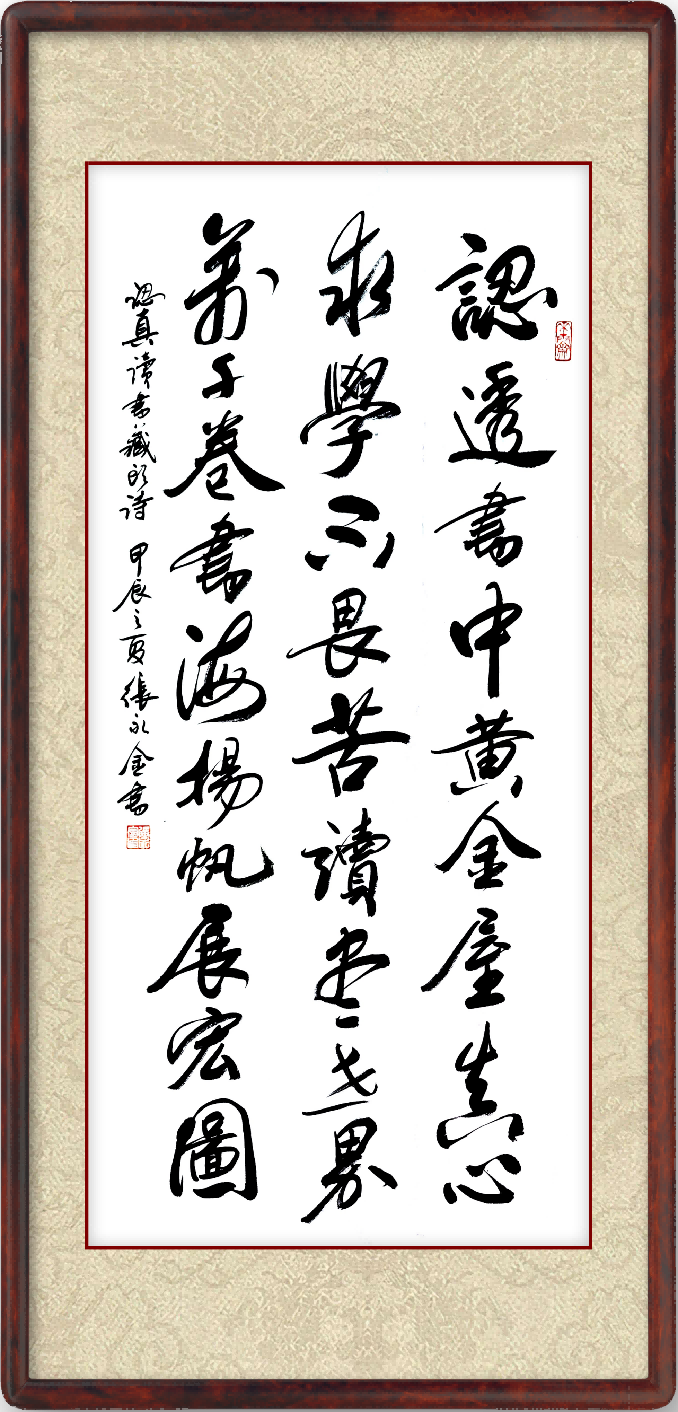 認透書中黄金屋真心
求學不畏苦讀尽世界
萬千卷書海揚帆展宏圖
認真讀書藏頭詩 甲辰之夏張永金書